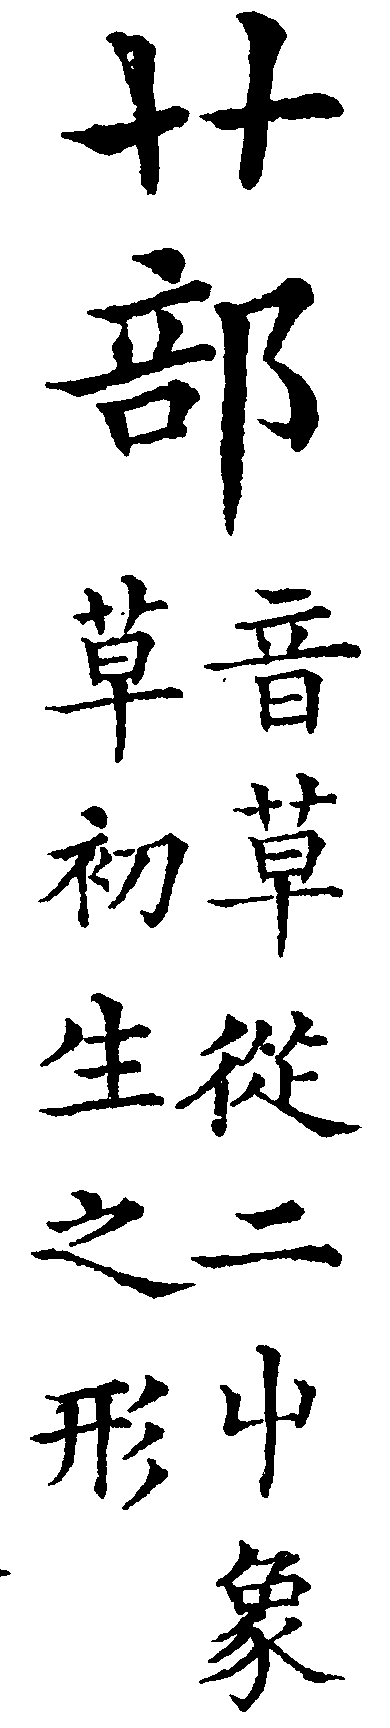 艹部
音草從二屮象
草初生之形